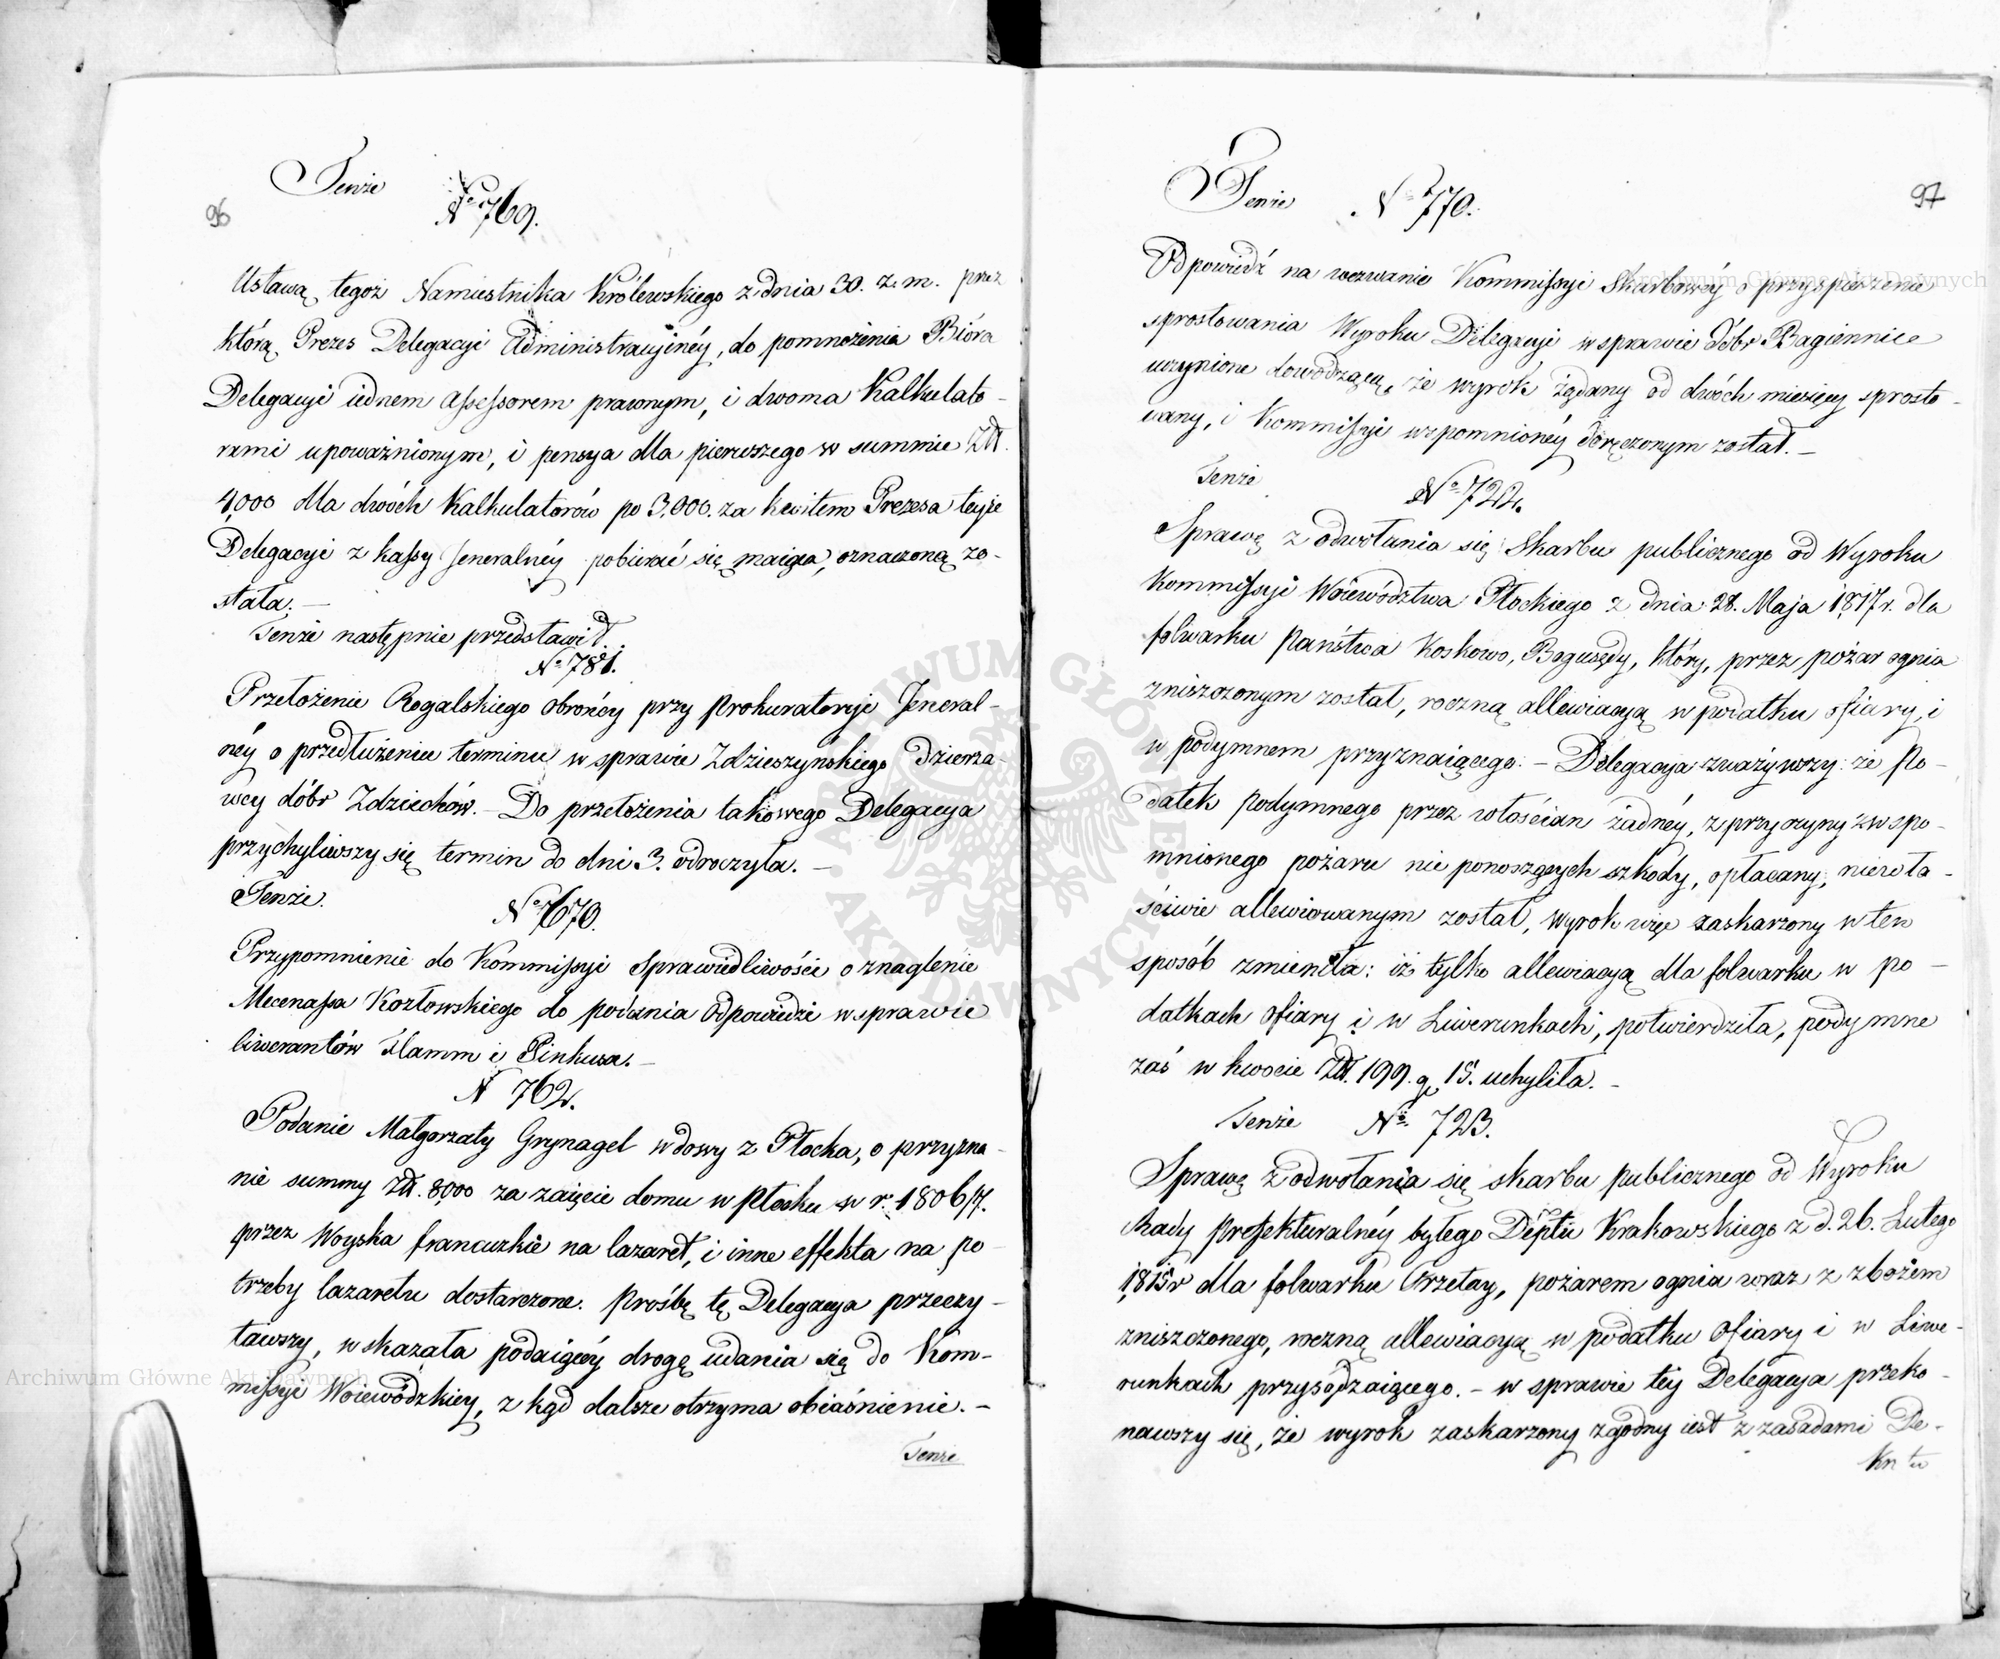 96
Tenże
Nº 769.
Ustawą tegoż Namiestnika Królewskiego z dnia 30. z. m. przez
którą Prezes Delegacyi Administracyinéy, do pomnożenia Bióra
Delegacyi iednem Assessorem prawnym, i dwoma Kalkulato-
rami upoważnionym, i pensya dla pierwszego w summie Złł.
4,000 dla dwóch Kalkulatorów po 3,000. za kwitem Prezesa teyże
Delegacyi z kassy Jeneralnéy pobierać się maiąca, oznaczoną zo-
stała. —
Tenże następnie przedstawił.
Nº 781.
Przełożenie Rogalskiego obrońcy przy Prokuratoryi Jeneral-
néy o przedłużenie terminu w sprawie Zdzieszyńskiego Dzierża-
wcy dóbr Zdziechów. – Do przełożenia takowego Delegacya
przychyliwszy się termin do dni 3. odroczyła. —
Tenże.
Nº 7670.
Przypomnienie do Kommissyi Sprawiedliwości o znaglenie
Mecenassa Kozłowskiego do podania Odpowiedzi w sprawie
liwerantów Flamm i Pinkusa. —
N 762.
Podanie Małgorzaty Grynagel wdowy z Płocka, o przyzna-
nie summy Złł. 8,000 za zaięcie domu w Płocku w r. 1806/7.
przez Woyska francuzkie na lazaret, i inne effekta na po-
trzeby lazaretu dostarczone. Prośbę tę Delegacya przeczy-
tawszy, wskazała podaiącéy drogę udania się do Kom-
missyi Woiewódzkiey, z kąd dalsze otrzyma obiaśnienie. –
Tenże
97
Tenże Nº 770.
Odpowiedź na wezwanie Kommissyi Skarbowéy o przyspieszenie
sprostowania Wyroku Delegacyi w sprawie dóbr Bagiennice
uczynione dowodzącą, że wyrok żądany od dwóch miesięcy sprosto-
wany, i Kommissyi wspomnionéy doręczonym został. —
Tenże
Nº 722.
Sprawę z odwołania się Skarbu publicznego od Wyroku
Kommissyi Woiewództwa Płockiego z dnia 28. Maja 1817 r. dla
folwarku Państwa Koskowo, Bogusędy, który, przez pożar ognia
zniszczonym został, roczną allewiacyą w podatku ofiary, i
w podymnem przyznaiącego. – Delegacya zważywszy: że Po-
datek podymnego przez włościan żadnéy, z przyczyny wspo-
mnionego pożaru nie ponoszących szkody, opłacany, niewła-
ściwie allewiowanym został, wyrok więc zaskarzony w ten
sposób zmieniła: iż tylko allewiacyą dla folwarku w po-
datkach ofiary i w Liwerunkach, potwierdziła, podymne
zaś w kwocie Złł. 199. g. 15. uchyliła. –
Tenże Nº 723.
Sprawę z odwołania się skarbu publicznego od Wyroku
Rady Prefekturalnéy byłego Deptu Krakowskiego z d. 26. Lutego
1815 r dla folwarku Grzetay, pożarem ognia wraz z zbożem
zniszczonego, roczną allewiacyą w podatku Ofiary i w Liwe-
runkach przysądzaiącego. – w sprawie tey Delegacya przeko-
nawszy się, że wyrok zaskarzony zgodny iest z zasadami De-
Kretu